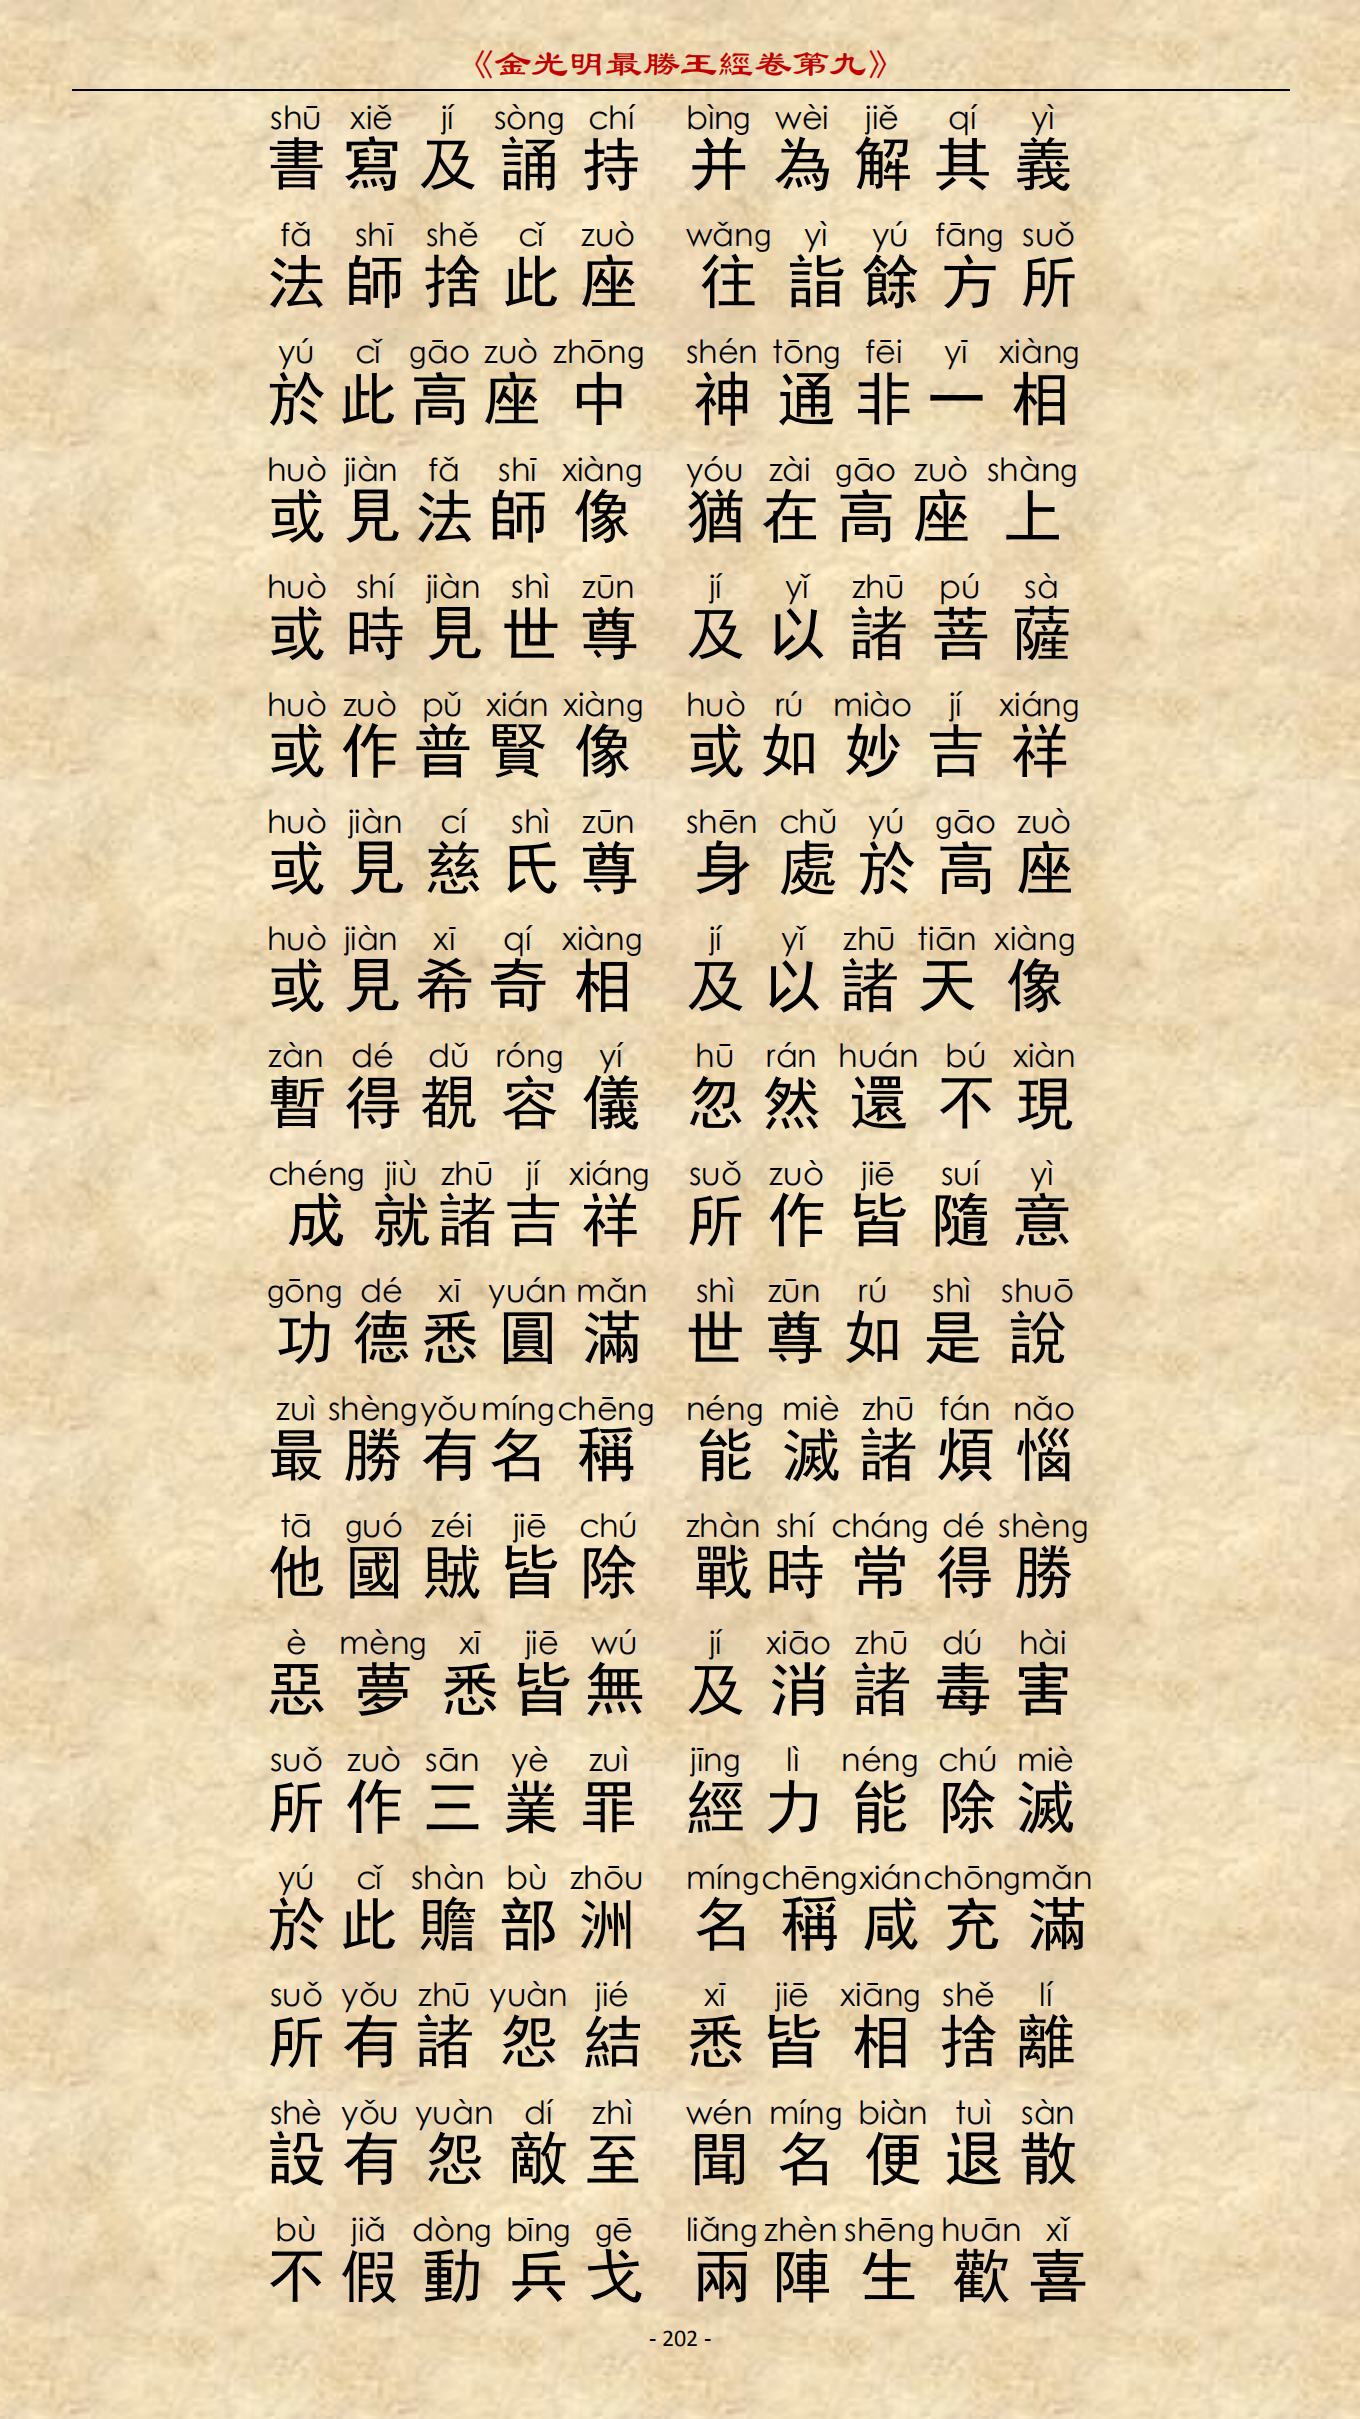 《金光明最勝王經卷第九》
shū xiě jí sòng chí bìng wèi jiě qí yì
書寫及誦持 并為解其義
fǎ shī shě cǐ zuò wǎng yì yú fāng suǒ
法師捨此座 往詣餘方所
yú cǐ gāo zuò zhōng shén tōng fēi yī xiàng
於此高座中 神通非一相
huò jiàn fǎ shī xiàng yóu zài gāo zuò shàng
或見法師像 猶在高座上
huò shí jiàn shì zūn jí yǐ zhū pú sà
或時見世尊 及以諸菩薩
huò zuò pǔ xián xiàng huò rú miào jí xiáng
或作普賢像 或如妙吉祥
huò jiàn cí shì zūn shēn chǔ yú gāo zuò
或見慈氏尊 身處於高座
huò jiàn xī qí xiàng jí yǐ zhū tiān xiàng
或見希奇相 及以諸天像
zàn dé dǔ róng yí hū rán huán bú xiàn
暫得覩容儀 忽然還不現
chéng jiù zhū jí xiáng suǒ zuò jiē suí yì
成就諸吉祥 所作皆隨意
gōng dé xī yuán mǎn shì zūn rú shì shuō
功德悉圓滿 世尊如是說
zuì shèng yǒu míng chēng néng miè zhū fán nǎo
最勝有名稱 能滅諸煩惱
tā guó zéi jiē chú zhàn shí cháng dé shèng
他國賊皆除 戰時常得勝
è mèng xī jiē wú jí xiāo zhū dú hài
惡夢悉皆無 及消諸毒害
suǒ zuò sān yè zuì jīng lì néng chú miè
所作三業罪 經力能除滅
yú cǐ shàn bù zhōu míng chēng xián chōng mǎn
於此贍部洲 名稱咸充滿
suǒ yǒu zhū yuàn jié xī jiē xiāng shě lí
所有諸怨結 悉皆相捨離
shè yǒu yuàn dí zhì wén míng biàn tuì sàn
設有怨敵至 聞名便退散
bù jiǎ dòng bīng gē liǎng zhèn shēng huān xǐ
不假動兵戈 兩陣生歡喜
- 202 -